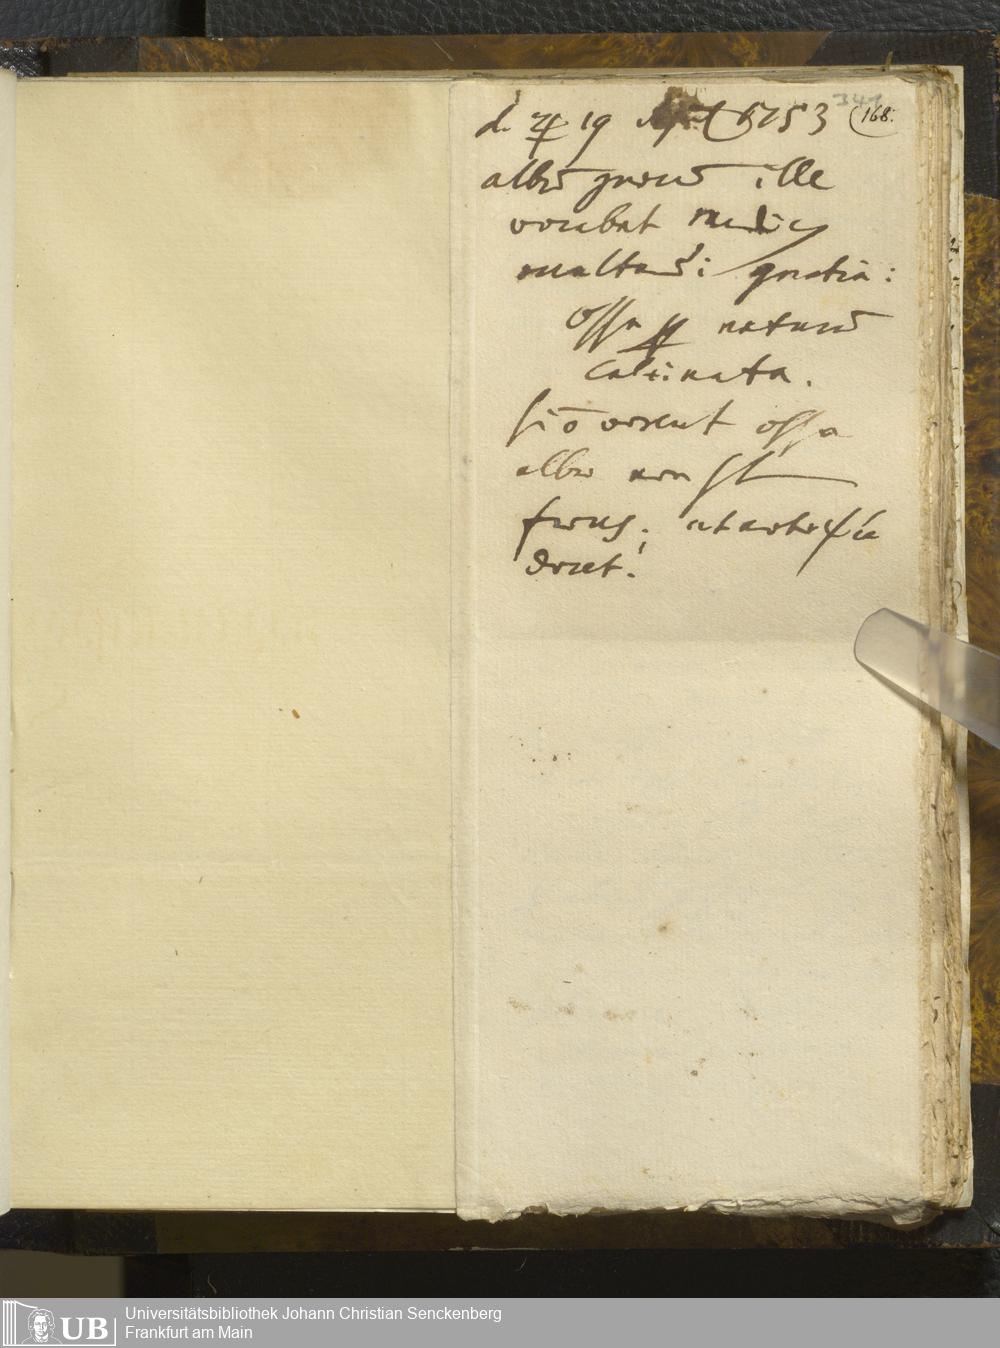 d. ♃ 19 April 1753
341
168.
albū græcū ille
vocabat medicus
multarū: gratia:
ossa per naturā
calcinata.
si ō vorent ossa
albus non st
ficus; ut autopsia
docet.
UB
Universitätsbibliothek Johann Christian Senckenberg
Frankfurt am Main